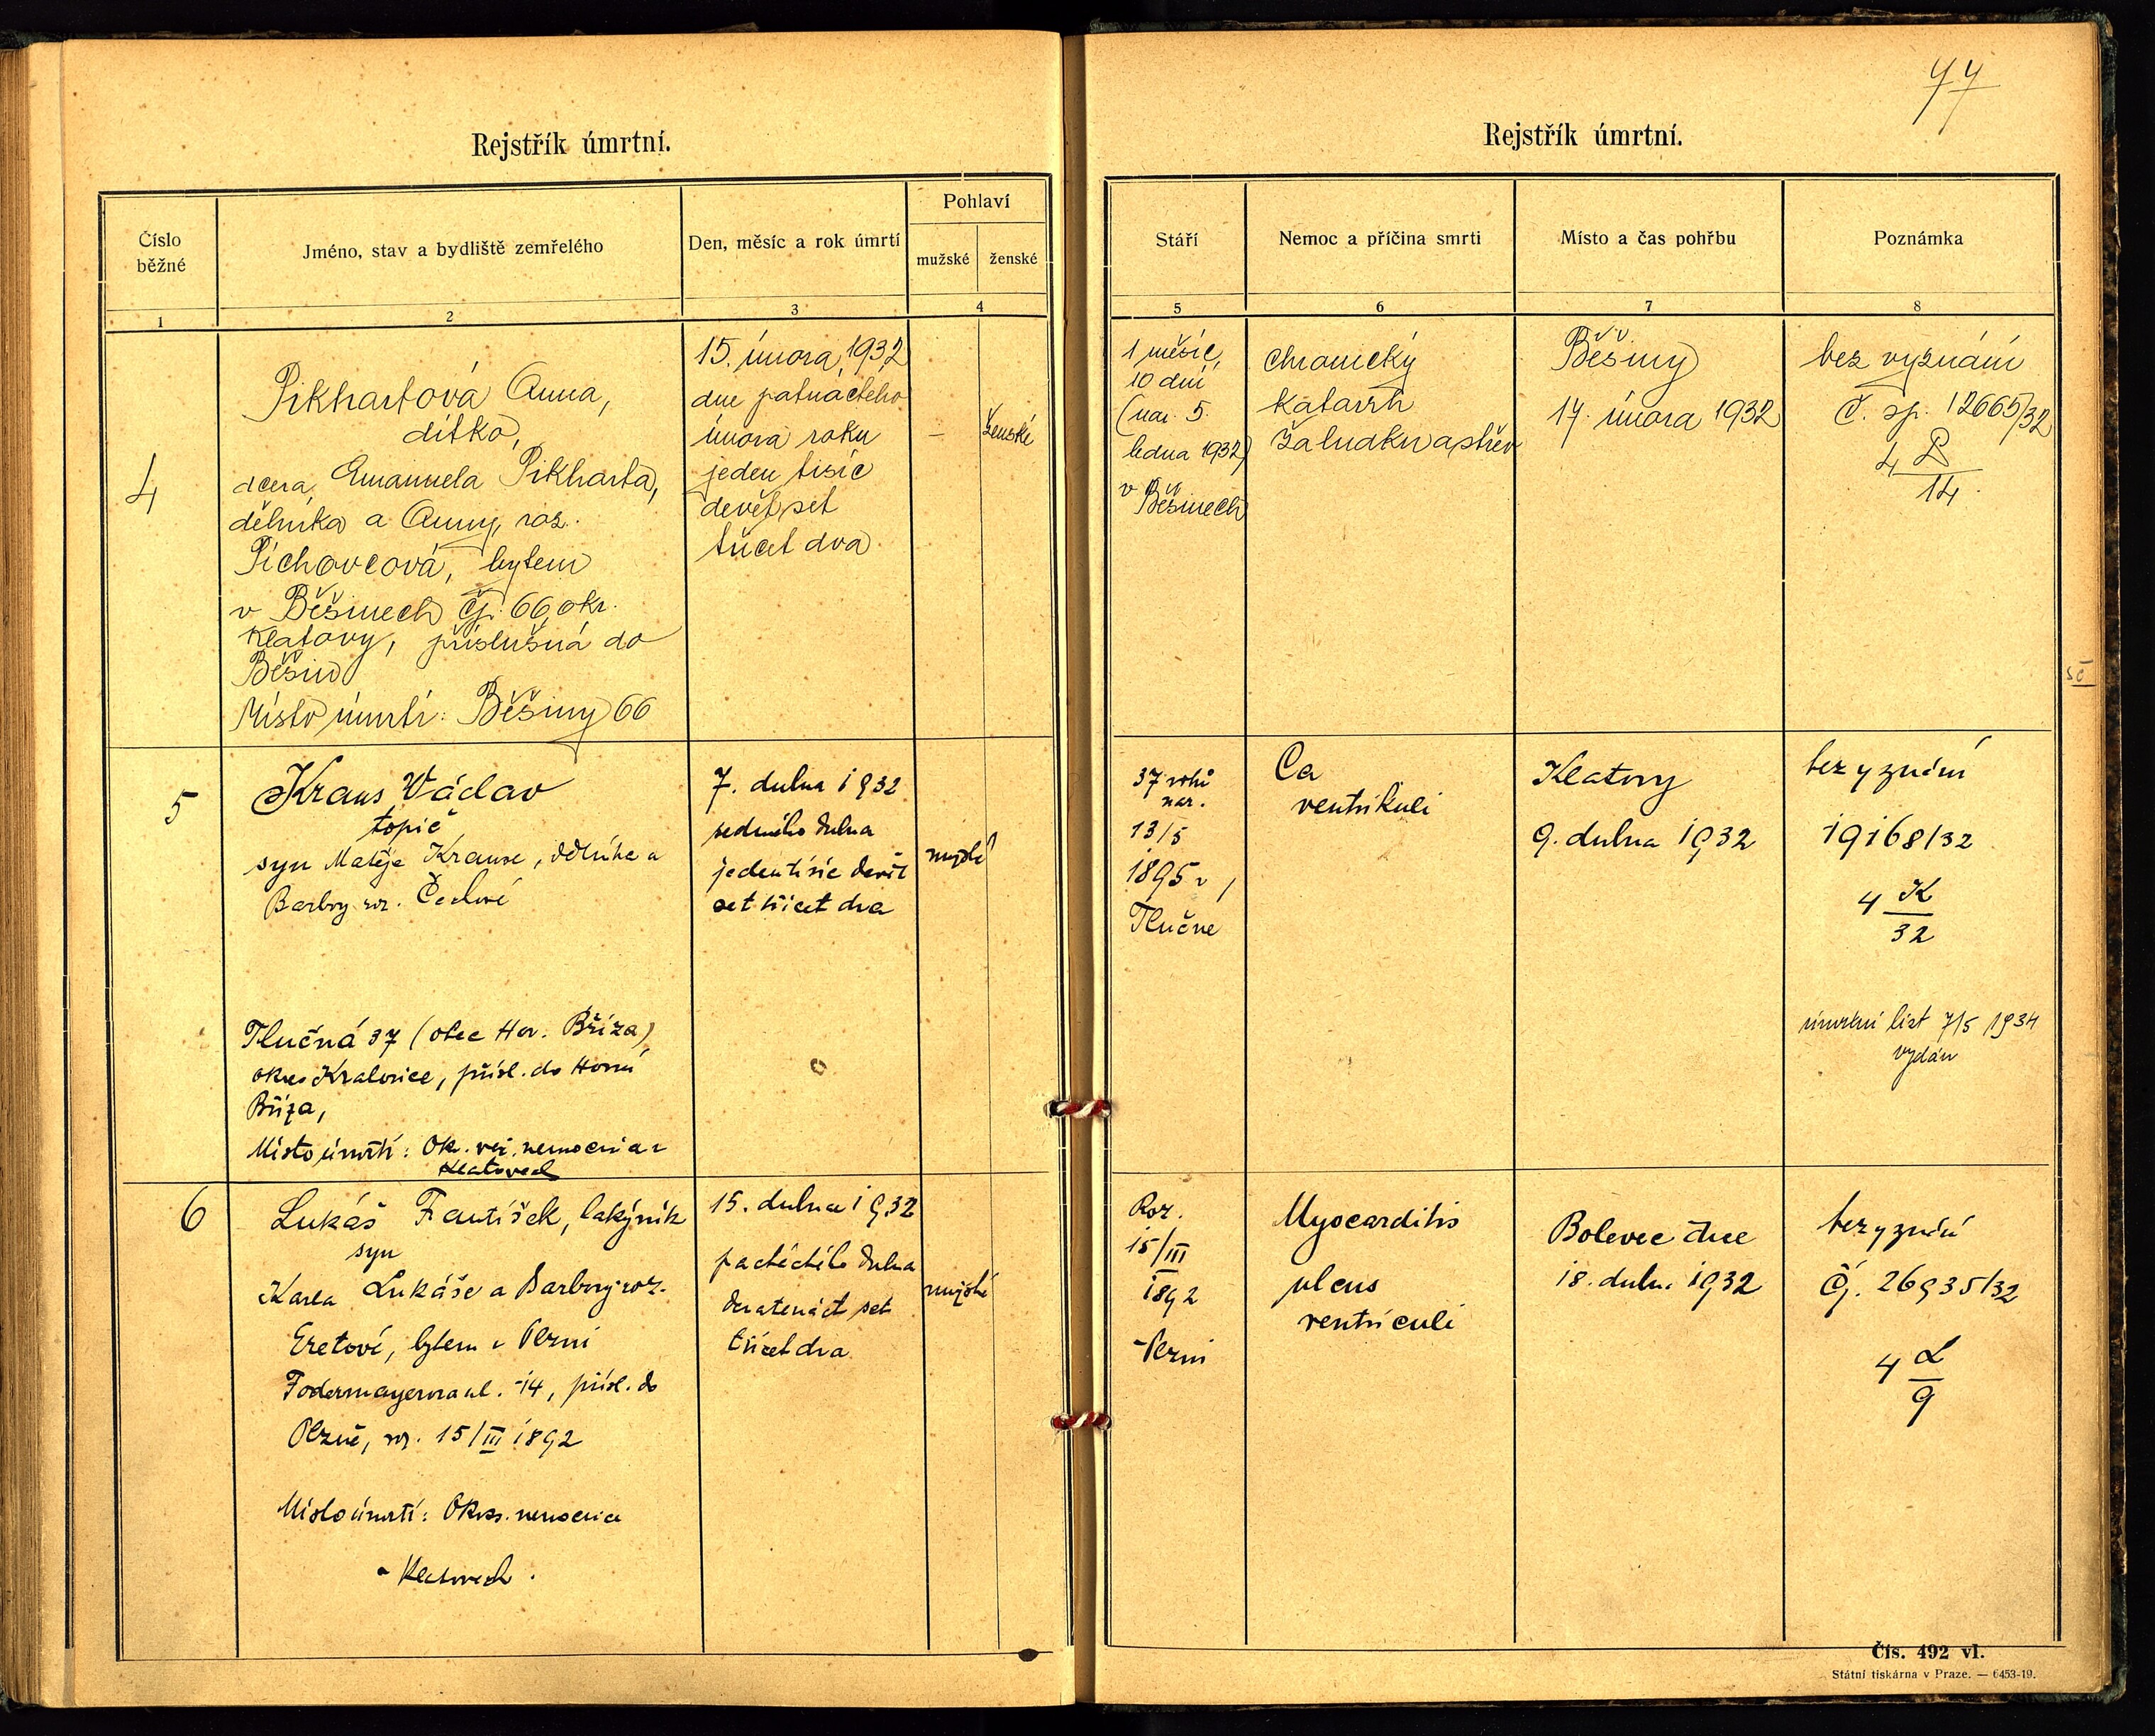 44
Rejstřík úmrtní.
Číslo běžné
Jméno, stav a bydliště zemřelého
Den, měsíc a rok úmrtí
Pohlaví
mužské
ženské
1
2
3
4
4
Pikhartová Anna,
dítko,
dcera Emanuela Pikharta,
dělníka a Anny, roz.
Píchovcová, bytem
v Běšinech čp. 66, okr.
Klatovy, příslušná do
Běšin
Místo úmrtí: Běšiny 66
15. února 1932
dne patnáctého
února roku
jeden tisíc
devět set
třicet dva
—
ženské
5
Kraus Václav
topič
syn Matěje Krause, dělníka a
Barbory roz. Čechové
Tlučná 37 (obec Hor. Bříza)
okres Kralovice, přísl. do Horní
Bříza,
Místo úmrtí: Okr. veř. nemocnice v
Klatovech
7. dubna 1932
sedmého dubna
jedentisíc devět
set třicet dva
mužské
6
Lukáš František, lakýrník
syn
Karla Lukáše a Barbory roz.
Eretové, bytem v Plzni
Fodermayerova ul. 14, přísl. do
Plzně, roz. 15/III 1892
Místo úmrtí: Okres. nemocnice
v Klatovech.
15. dubna 1932
patnáctého dubna
devatenáct set
třicet dva
mužské
Rejstřík úmrtní.
Stáří
Nemoc a příčina smrti
Místo a čas pohřbu
Poznámka
5
6
7
8
1 měsíc,
10 dní
(nar. 5.
ledna 1932)
v Běšinech
chronický
katarrh
žaludku a střev
Běšiny
17. února 1932
bez vyznání
Č. sp. 12665/32
4 P
14.
37 roků
nar.
13/5
1895 v
Tlučné
Ca
ventrikuli
Klatovy
9. dubna 1932
bez vyznání
19168/32
4 K
32
úmrtní list 7/5 1934
vydán
Roz.
15/III
1892
v Plzni
Myocarditis
ulcus
ventriculi
Bolevec dne
18. dubna 1932
bez vyznání
Čj. 26935/32
4 L
9
Čís. 492 vl.
Státní tiskárna v Praze. — 6453-19.